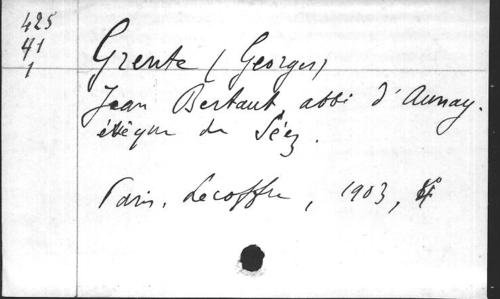 425
41
1
Grente (Georges)
Jean Bertaut, abbé d'Aunay.
évêque de Séez.
Paris, Lecoffre, 1903,